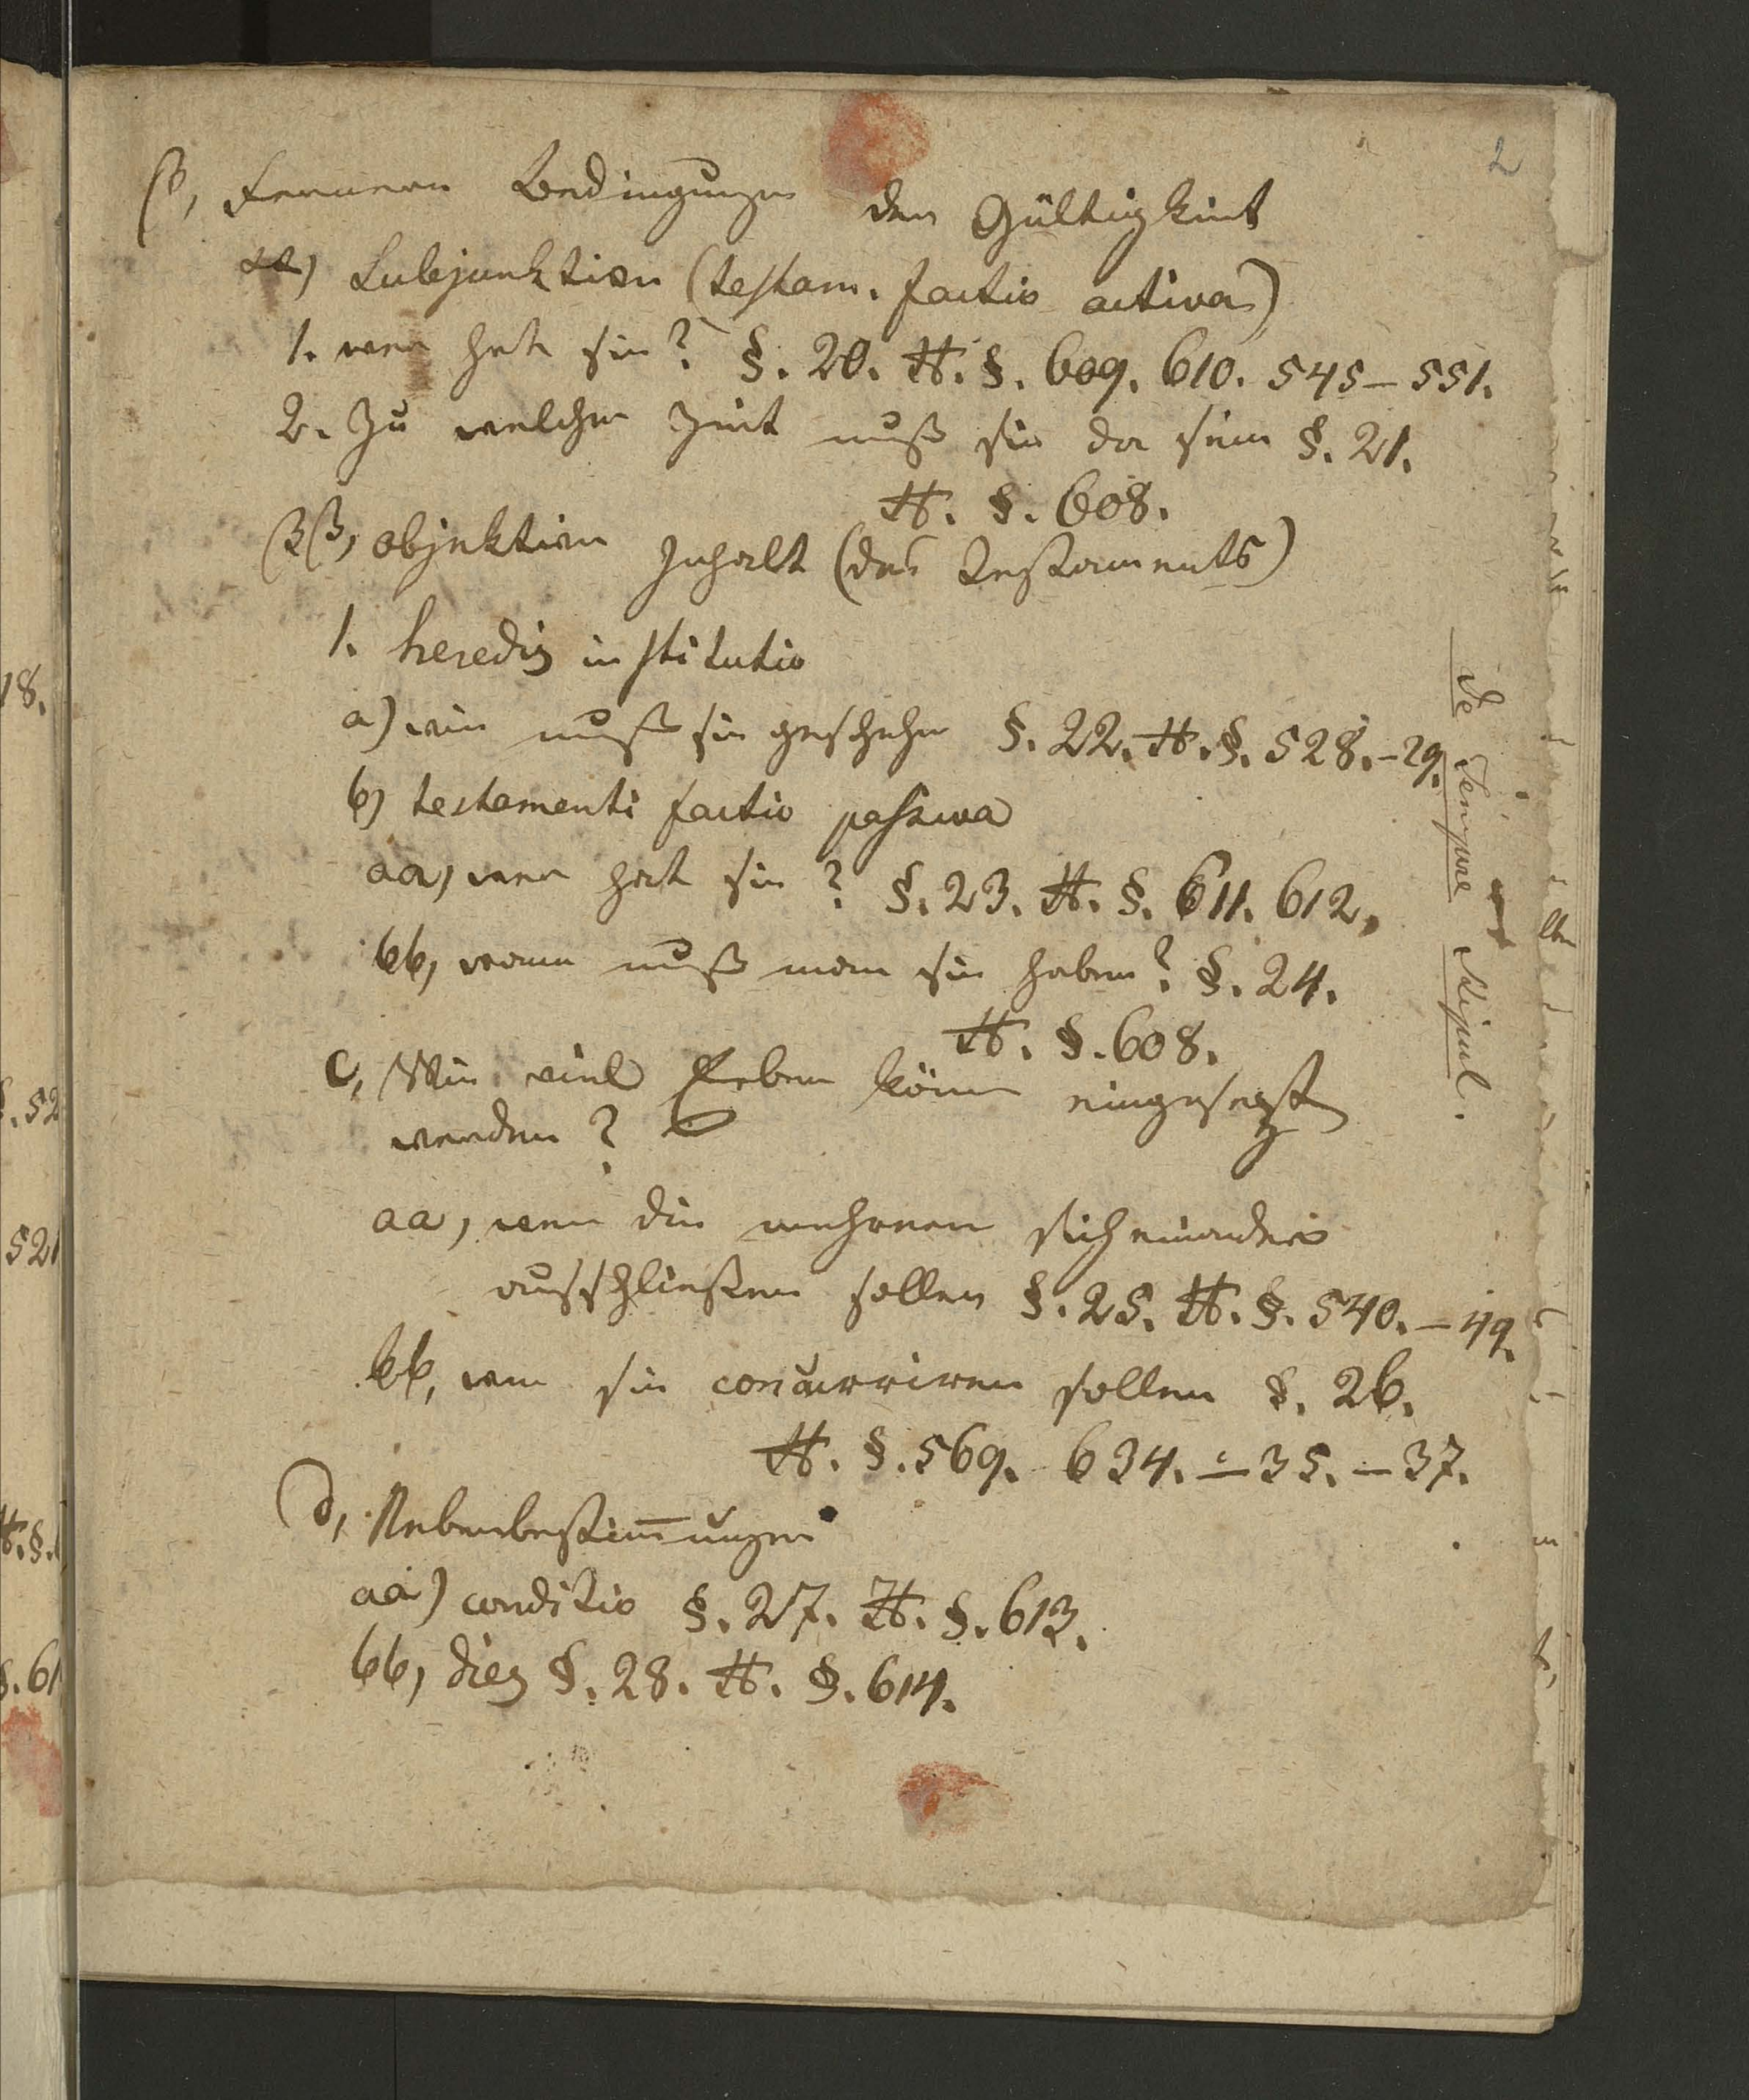 2
β, Fernere Bedingungen der Gültigkeit
αα) Subjecktive (testam. factio activa)
1. wer hat sie? §. 20. H. §. 609. 610. 545–551.
2. Zu welcher Zeit muß sie da sein §. 21.
H. §. 608.
ββ, objektiver Inhalt (des Testaments)
1. heredis institutio
a) wie muß sie geschehen §. 22. H. §. 528.–29.
b) testamenti factio passiva
aa, wer hat sie? §. 23. H. §. 611. 612,
bb, wann muß man sie haben? §. 24.
H. §. 608.
c, Wie viel Erben könen eingesezt
werden?
aa, wenn die mehrern sich einander
ausschließen sollen §. 25. H. §. 540.–49.
bb, wen sie concurriren sollen §. 26.
H. §. 569. 634. – 35. – 37.
d, Nebenbestimungen
aa) conditio §. 27. H. §. 613.
bb, dies §. 28. H. §. 614.
de Tempore
18.
§. 52
521
H. §.
§. 61